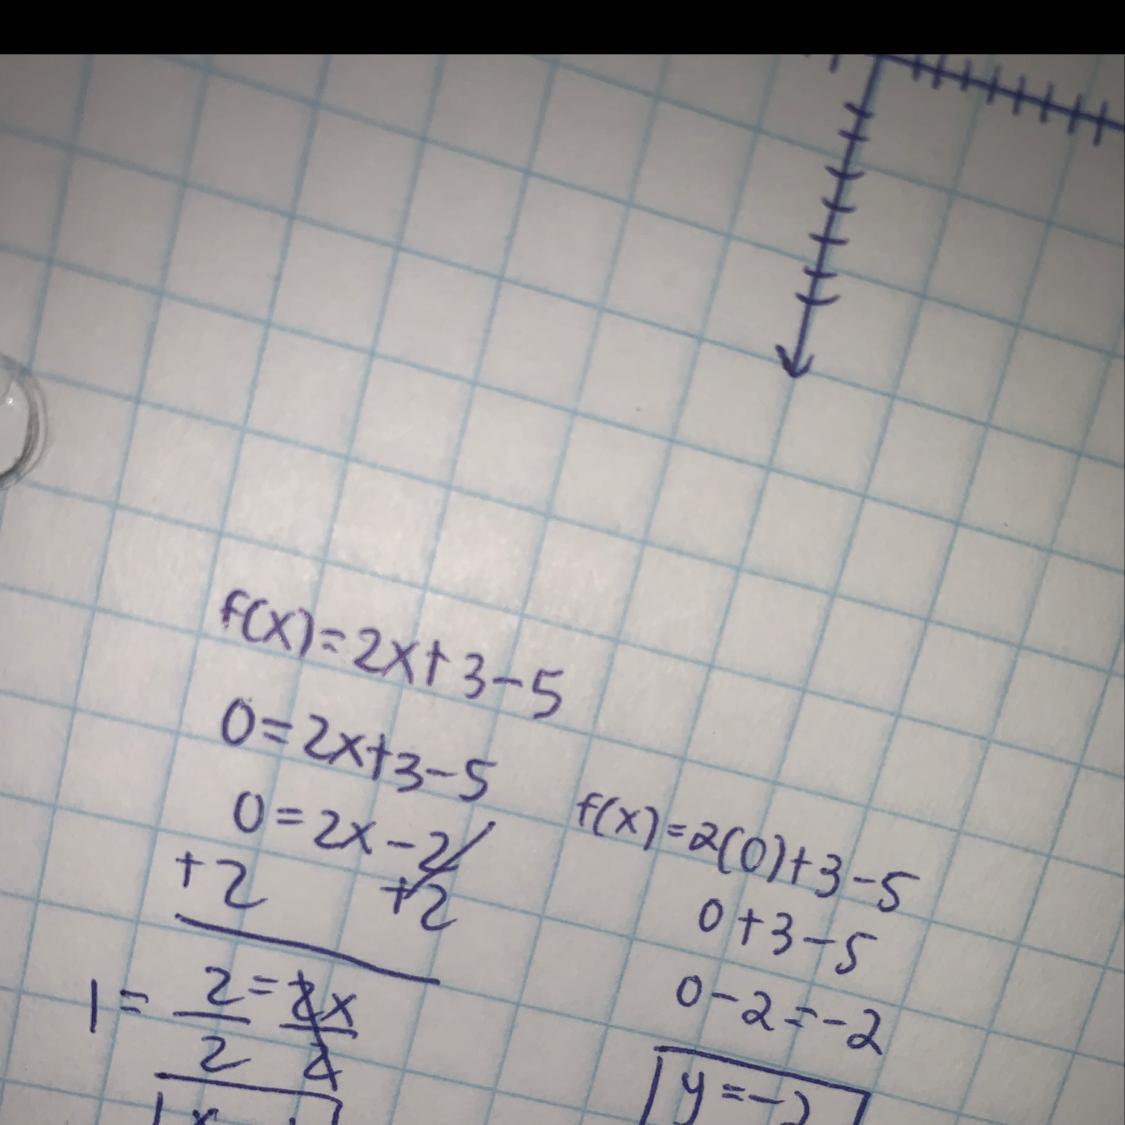 f(x)=2x+3-5
0=2x+3-5
0=2x-2
+2 +2
1= 2/2=2x/2
f(x)=2(0)+3-5
0+3-5
0-2=-2
y=-2